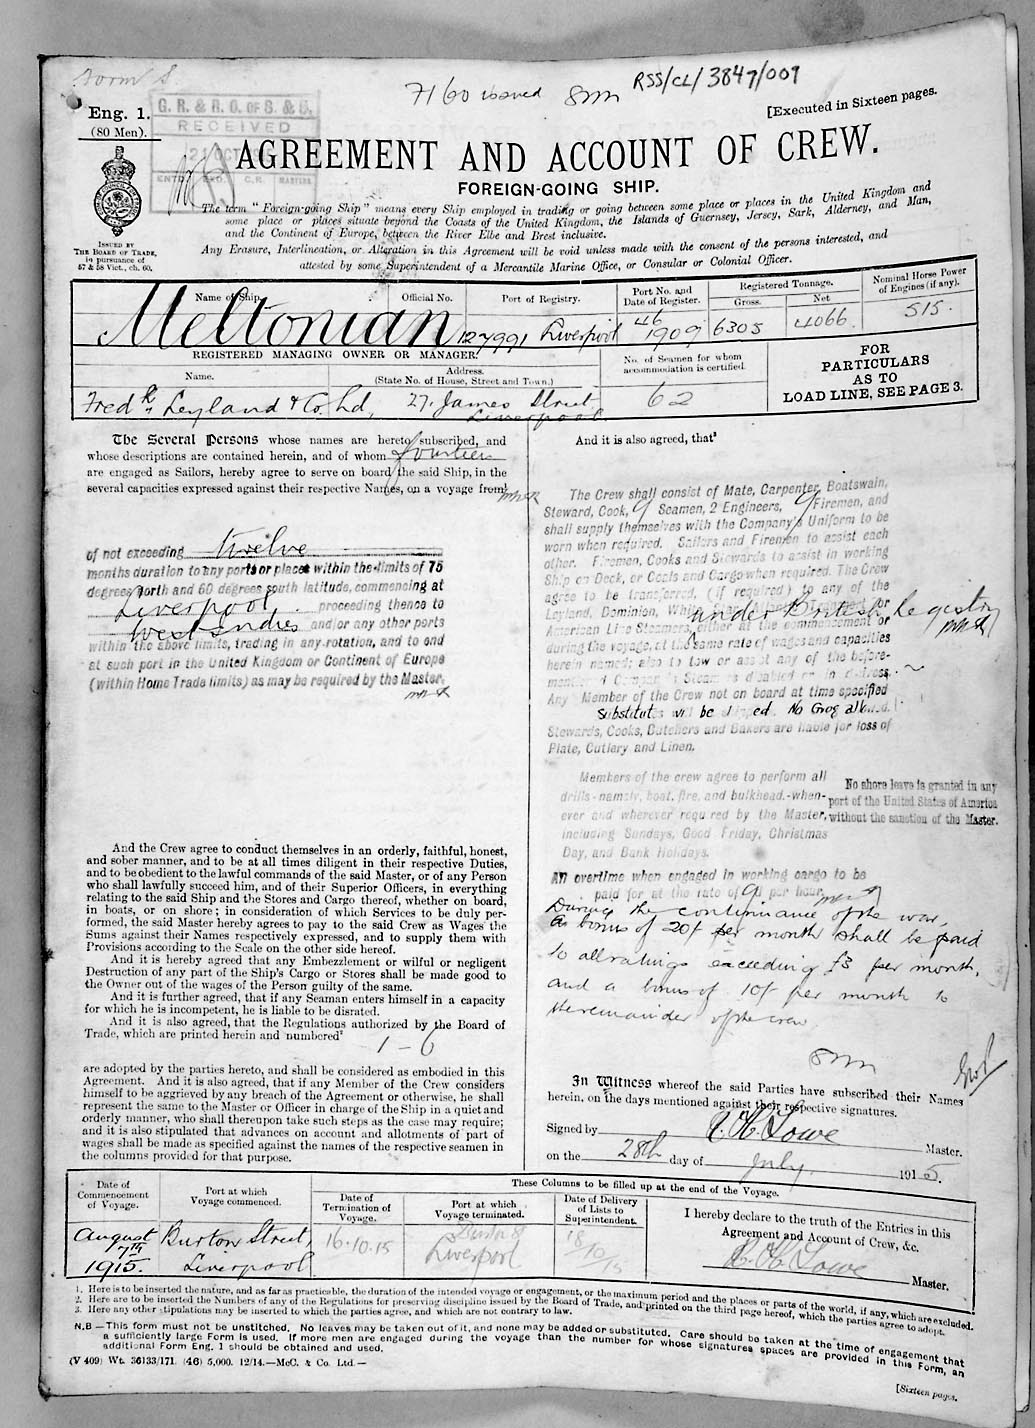 Form S.
7160 issued
RSS/CL/3847/009
Eng. 1.
(80 Men).
G. R. & R. O. OF S. & S.
RECEIVED
21 OCT
C.R. MASTERS
[Executed in Sixteen pages.
AGREEMENT AND ACCOUNT OF CREW.
FOREIGN-GOING SHIP.
The term "Foreign-going Ship" means every Ship employed in trading or going between some place or places in the United Kingdom and
some place or places situate beyond the Coasts of the United Kingdom, the Islands of Guernsey, Jersey, Sark, Alderney, and Man,
and the Continent of Europe, between the River Elbe and Brest inclusive.
Any Erasure, Interlineation, or Alteration in this Agreement will be void unless made with the consent of the persons interested, and
attested by some Superintendent of a Mercantile Marine Office, or Consular or Colonial Officer.
ISSUED BY
THE BOARD OF TRADE,
in pursuance of
57 & 58 Vict., ch. 60.
Name of Ship. Official No. Port of Registry. Port No. and Date of Register. Registered Tonnage. Gross. Net Nominal Horse Power of Engines (if any).
Meltonian 127991 Liverpool 46 1909 6305 4066 515.
REGISTERED MANAGING OWNER OR MANAGER.
Name. Address. (State No. of House, Street and Town.)
No. of Seamen for whom accommodation is certified.
Fredk. Leyland & Co. Ld, 27. James Street Liverpool. 62
FOR
PARTICULARS
AS TO
LOAD LINE, SEE PAGE 3.
The Several Persons whose names are hereto subscribed, and
whose descriptions are contained herein, and of whom fourteen
are engaged as Sailors, hereby agree to serve on board the said Ship, in the
several capacities expressed against their respective Names, on a voyage from¹
of not exceeding twelve
months duration to any ports or places within the limits of 75
degrees north and 60 degrees south latitude, commencing at
Liverpool proceeding thence to
West Indies and/or any other ports
within the above limits, trading in any rotation, and to end
at such port in the United Kingdom or Continent of Europe
(within Home Trade limits) as may be required by the Master.
And the Crew agree to conduct themselves in an orderly, faithful, honest,
and sober manner, and to be at all times diligent in their respective Duties,
and to be obedient to the lawful commands of the said Master, or of any Person
who shall lawfully succeed him, and of their Superior Officers, in everything
relating to the said Ship and the Stores and Cargo thereof, whether on board,
in boats, or on shore; in consideration of which Services to be duly per-
formed, the said Master hereby agrees to pay to the said Crew as Wages the
Sums against their Names respectively expressed, and to supply them with
Provisions according to the Scale on the other side hereof.
And it is hereby agreed that any Embezzlement or wilful or negligent
Destruction of any part of the Ship's Cargo or Stores shall be made good to
the Owner out of the wages of the Person guilty of the same.
And it is further agreed, that if any Seaman enters himself in a capacity
for which he is incompetent, he is liable to be disrated.
And it is also agreed, that the Regulations authorized by the Board of
Trade, which are printed herein and numbered²
1 - 6
are adopted by the parties hereto, and shall be considered as embodied in this
Agreement. And it is also agreed, that if any Member of the Crew considers
himself to be aggrieved by any breach of the Agreement or otherwise, he shall
represent the same to the Master or Officer in charge of the Ship in a quiet and
orderly manner, who shall thereupon take such steps as the case may require;
and it is also stipulated that advances on account and allotments of part of
wages shall be made as specified against the names of the respective seamen in
the columns provided for that purpose.
And it is also agreed, that³
The Crew shall consist of Mate, Carpenter, Boatswain,
Steward, Cook, 9 Seamen, 2 Engineers, 9 Firemen, and
shall supply themselves with the Company's Uniform to be
worn when required. Sailors and Firemen to assist each
other. Firemen, Cooks and Stewards to assist in working
Ship on Deck, or Coals and Cargo when required. The Crew
agree to be transferred, (if required) to any of the
Leyland, Dominion, White Star or
American Line Steamers, under British Registry either at the commencement or
during the voyage, at the same rate of wages and capacities
herein named; also to tow or assist any of the before-
mentioned Company's Steamers disabled or in distress.
Any Member of the Crew not on board at time specified
Substitutes will be engaged. No Grog allowed.
Stewards, Cooks, Butchers and Bakers are liable for loss of
Plate, Cutlery and Linen.
Members of the crew agree to perform all
drills - namely, boat, fire, and bulkhead, - when-
ever and wherever required by the Master,
including Sundays, Good Friday, Christmas
Day, and Bank Holidays.
No shore leave is granted in any
port of the United States of America
without the sanction of the Master.
All overtime when engaged in working cargo to be
paid for at the rate of 9d per hour
During the continuance of the war,
a bonus of 20/- per month shall be paid
to all ratings exceeding £3 per month,
and a bonus of 10/- per month to
the remainder of the crew
In Witness whereof the said Parties have subscribed their Names
herein, on the days mentioned against their respective signatures.
Signed by R. H. Lowe Master.
on the 28th day of July 1915.
These Columns to be filled up at the end of the Voyage.
Date of Commencement of Voyage. Port at which Voyage commenced. Date of Termination of Voyage. Port at which Voyage terminated. Date of Delivery of Lists to Superintendent.
I hereby declare to the truth of the Entries in this
Agreement and Account of Crew, &c.
August 7th 1915. Burton Street, Liverpool 16.10.15 Liverpool 18/10/15
R. H. Lowe Master.
1. Here is to be inserted the nature, and as far as practicable, the duration of the intended voyage or engagement, or the maximum period and the places or parts of the world, if any, which are excluded.
2. Here are to be inserted the Numbers of any of the Regulations for preserving discipline issued by the Board of Trade, and printed on the third page hereof, which the parties agree to adopt.
3. Here any other stipulations may be inserted to which the parties agree, and which are not contrary to law.
N.B.—This form must not be unstitched. No leaves may be taken out of it, and none may be added or substituted. Care should be taken at the time of engagement that
a sufficiently large Form is used. If more men are engaged during the voyage than the number for whose signatures spaces are provided in this Form, an
additional Form Eng. 1 should be obtained and used.
(V 409) Wt. 36133/171. (46) 5,000. 12/14.—McC. & Co. Ltd.—
[Sixteen pages.